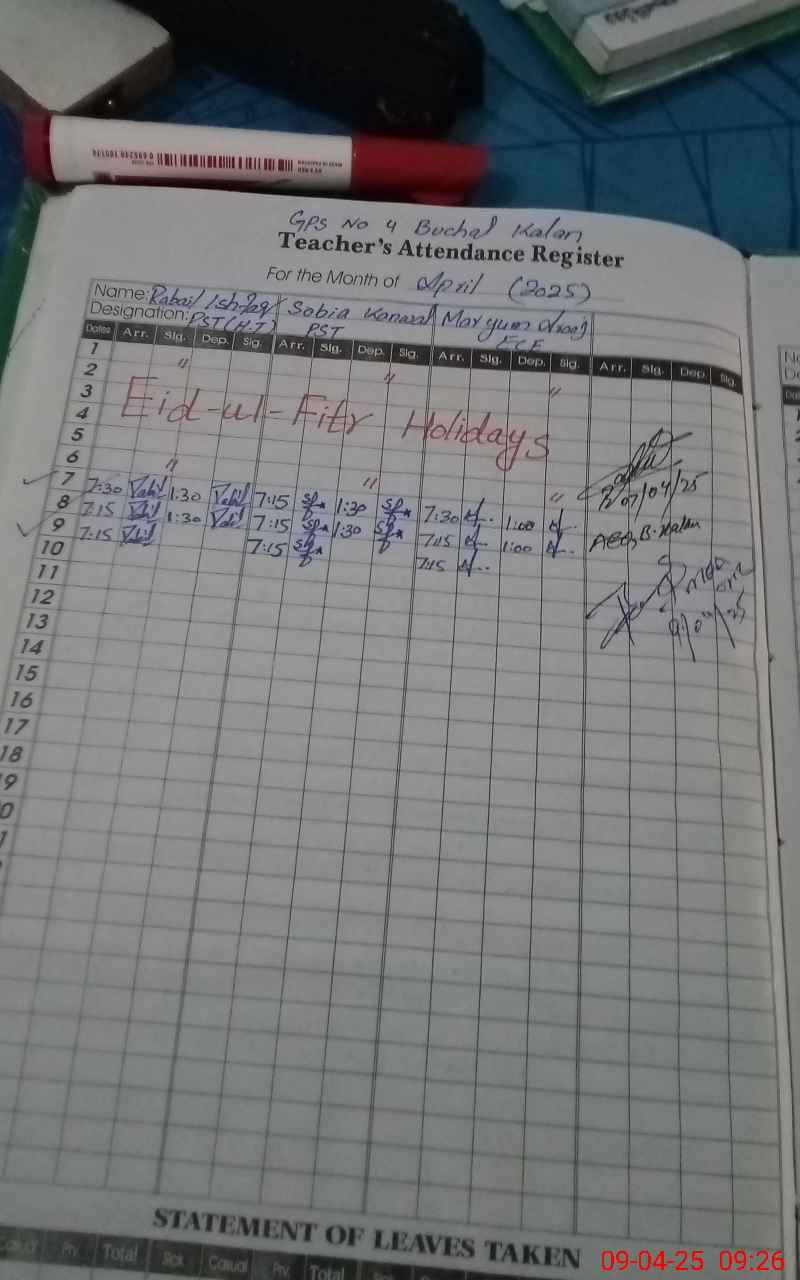 GPS No 4 Buchal Kalan
Teacher's Attendance Register
For the Month of April (2025)
Name: Rabail Ishfaq Sobia Kanwal Maryum
Designation: PST (H.T) PST ECE
Dates Arr. Sig. Dep. Sig. Arr. Sig. Dep. Sig. Arr. Sig. Dep. Sig. Arr. Sig. Dep. Sig.
1
2 " " "
3
4
Eid-ul-Fitr Holidays
5
6 " " "
7 7:30 1:30 7:15 1:30 7:30 1:00 07/04/25
8 7:15 1:30 7:15 1:30 7:15 1:00 AEO, B. Kalan
9 7:15 7:15 7:15
10
11
12
13
14
15
16
17
18
9
0
1
STATEMENT OF LEAVES TAKEN
Casual Prv. Total Sick Casual Prv. Total
09-04-25 09:26